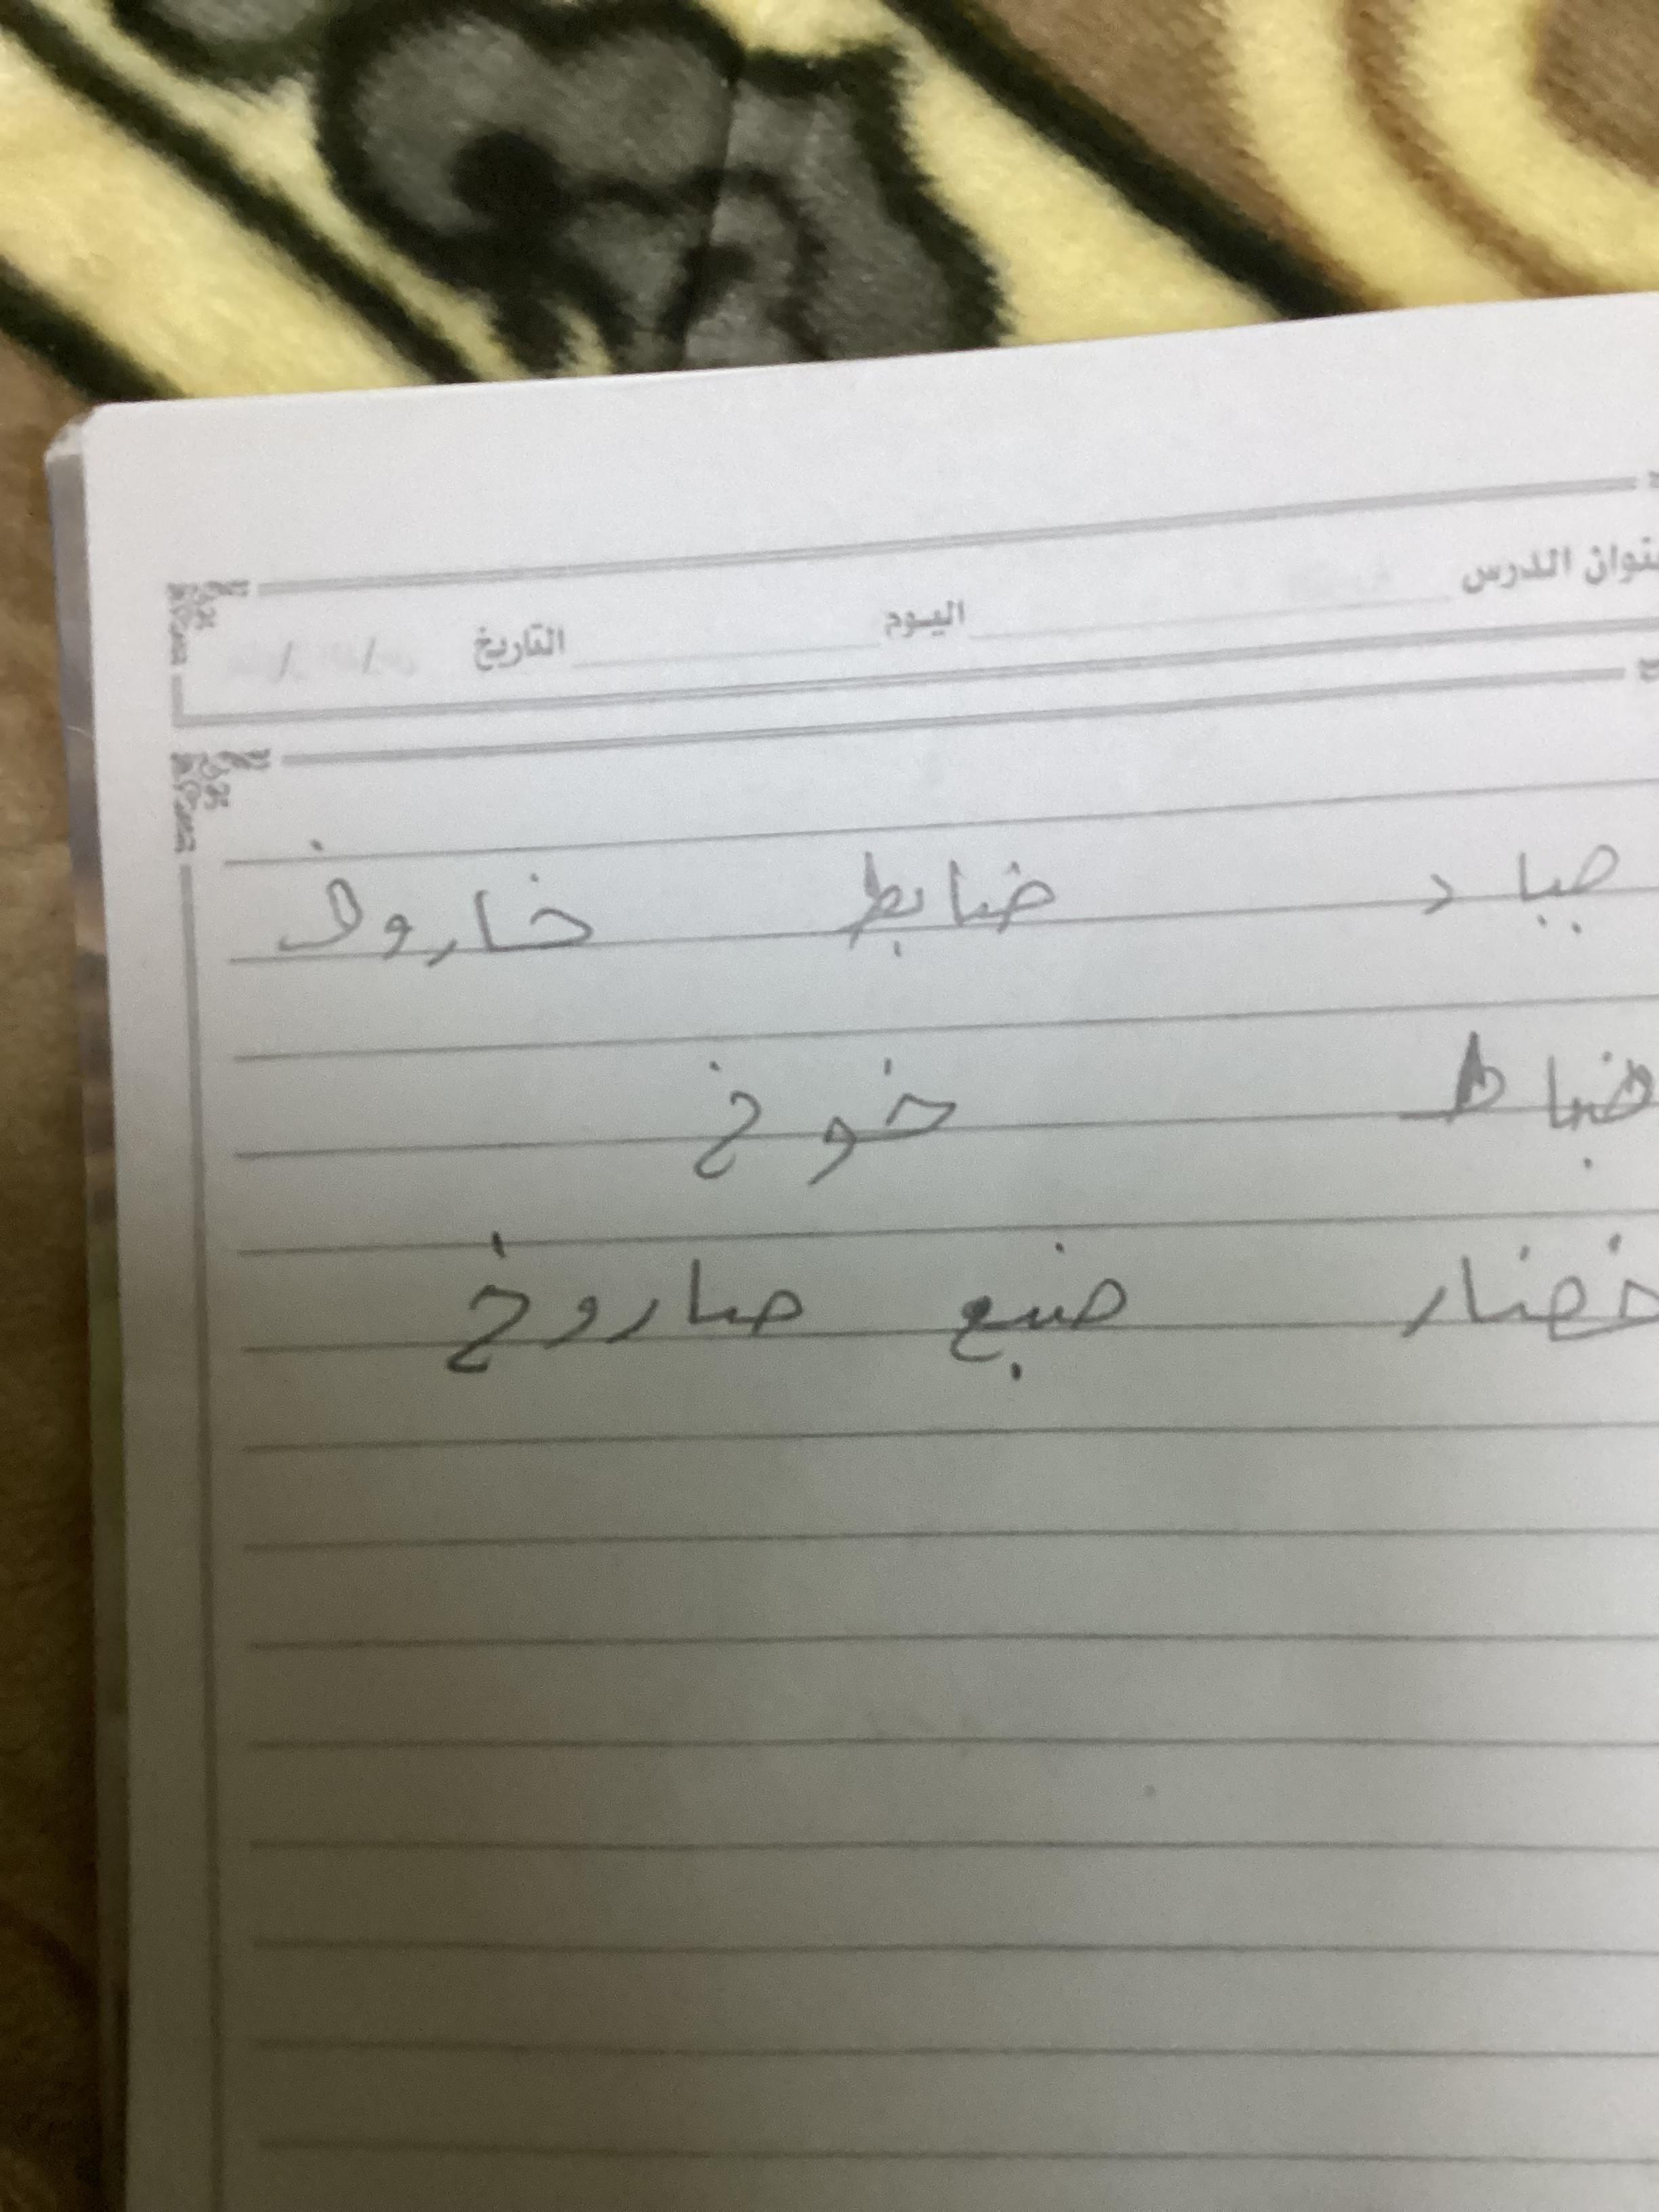 عنوان الدرس اليوم التاريخ / /
صياد ضابط خاروف
ضباط خوخ
خضار ضبع صاروخ